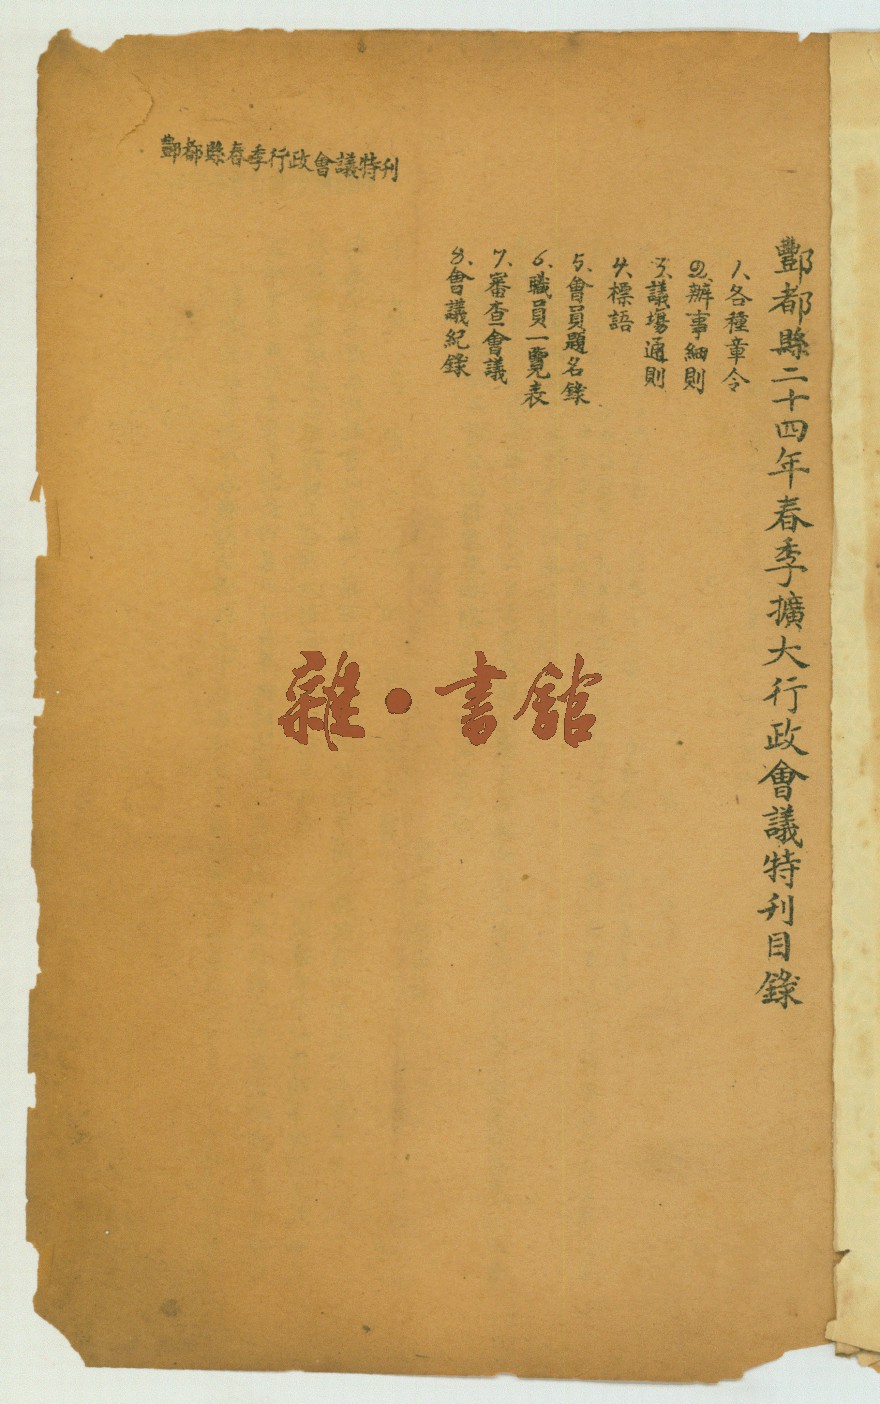 酆都縣春季行政會議特刊
酆都縣二十四年春季擴大行政會議特刊目錄
1、各種章令
2、辦事細則
3、議場通則
4、標語
5、會員題名錄
6、職員一覽表
7、審查會議
8、會議紀錄
雜·書館